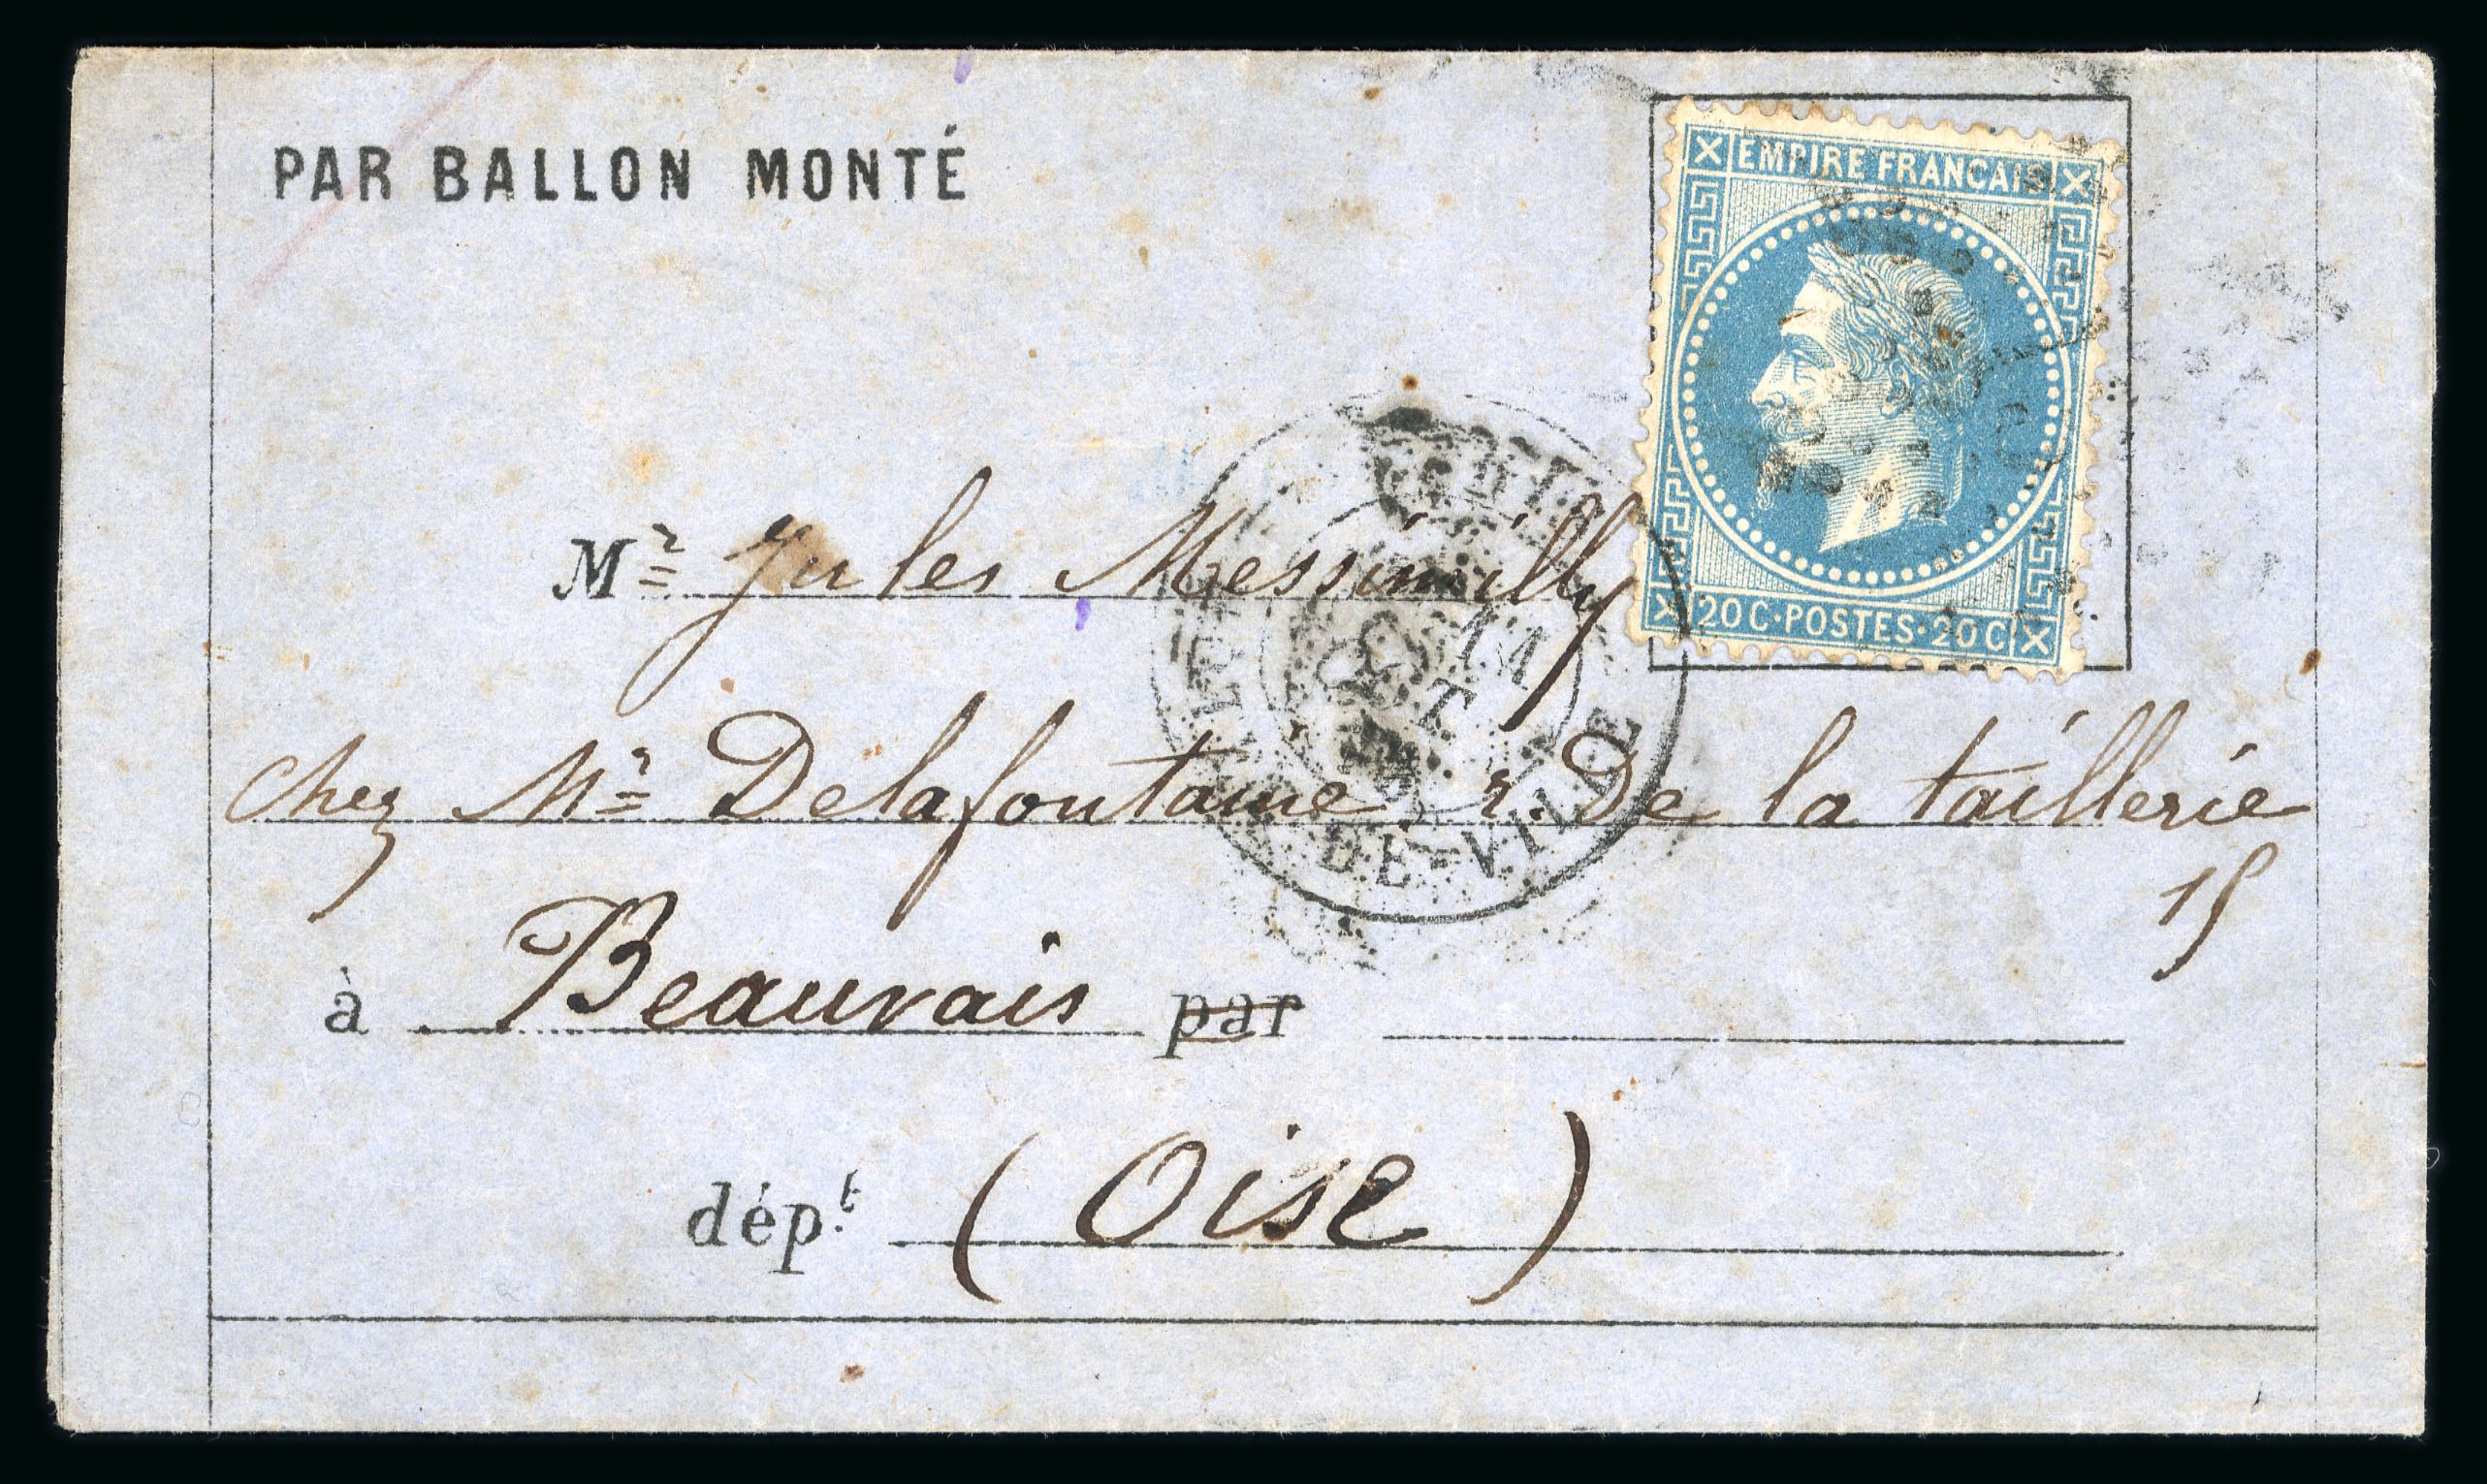 PAR BALLON MONTÉ
EMPIRE FRANCAIS
20 C · POSTES · 20 C
Mr Jules
chez Mr Delafontaine, r. De la taillerie
15
à Beauvais par
dépt (Oise)
DE-VILLE